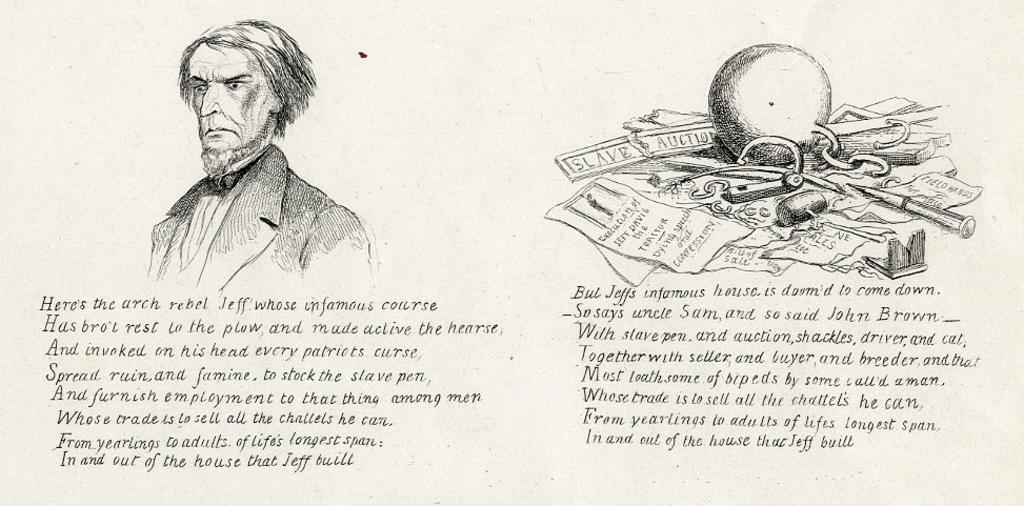 Here's the arch rebel Jeff whose infamous course
Has bro't rest to the plow, and made active the hearse,
And invoked on his head every patriots curse,
Spread ruin and famine to stock the slave pen,
And furnish employment to that thing among men
Whose trade is to sell all the chattels he can,
From yearlings to adults of life's longest span:
In and out of the house that Jeff built
SLAVE AUCTION
Execution of
JEFF DAVIS
the
TRAITOR
Dying speech
and
CONFESSION
Bill of
Sale
FIELD HANDS
But Jeffs infamous house is doom'd to come down.
—So says uncle Sam, and so said John Brown.—
With slave pen, and auction, shackles, driver, and cat,
Together with seller, and buyer, and breeder, and that
Most loathsome of bipeds by some call'd a man,
Whose trade is to sell all the chattels he can,
From yearlings to adults of lifes longest span,
In and out of the house that Jeff built